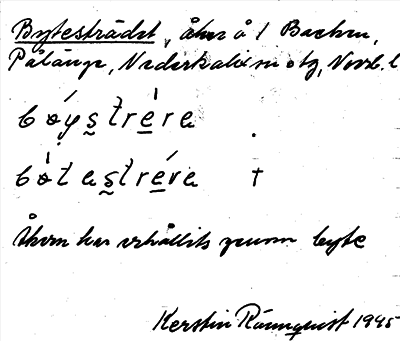 Bytesträdet, åker å 1 Backen,
Pålänge, Nederkalix sn o tg, Norrb. l
bo̜y s̰trḛre
bo̜tas̰trḛvа †
Åkern har erhållits genom byte
Kerstin Rännquist 1945